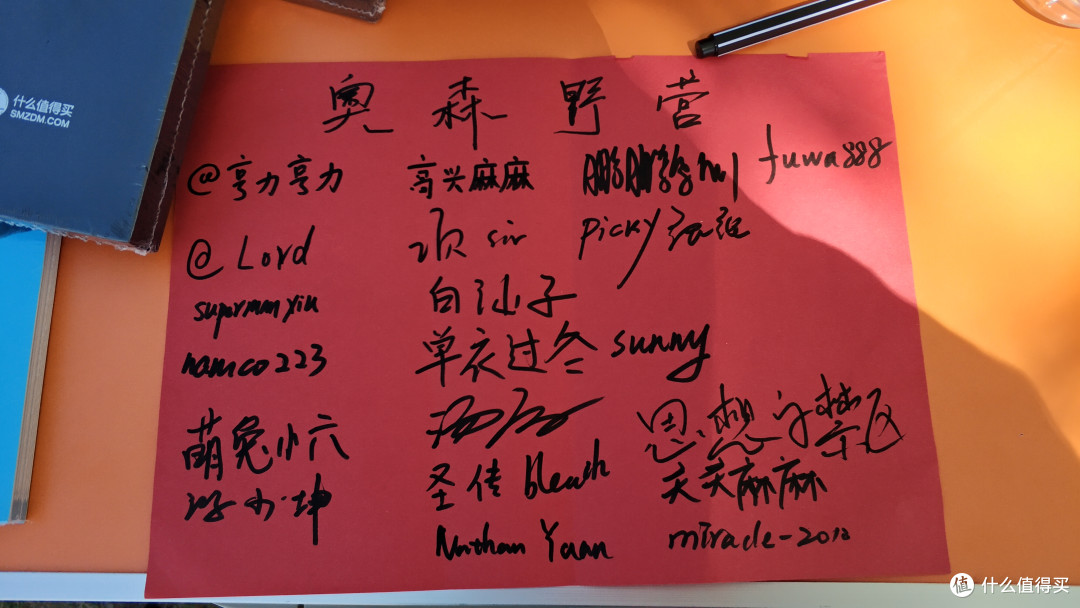 什么值得买
SMZDM.COM
奥森野营
@亨力亨力 高兴麻麻 fuwa888
@Lord 项sir picky
supermanyin 白汕子
namco223 单衣过冬 sunny
萌兔小六 思想的禁区
圣传bleach 天天麻麻
Nathan Yuan miracle-2012
值 什么值得买